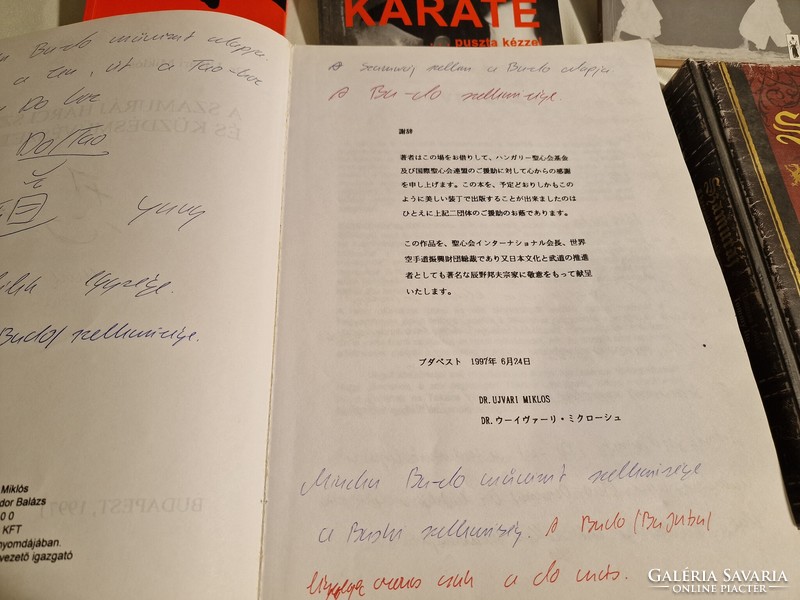 KARATE
puszta kézzel
n Bu-do művészet alapja.
a Zen, út a Tao-
Do
Do/Tao
egysége.
Budo/ szellemisége.
Miklós
dor Balázs
0 0
KFT
nyomdájában.
vezető igazgató
A szamuráj szellem a Bu-do alapja.
A Bu-do szellemisége.
謝辞
著者はこの場をお借りして、ハンガリー聖心会基金
及び国際聖心会連盟のご援助に対して心からの感謝
を申し上げます。この本を、予定どおりしかもこの
ように美しい装丁で出版することが出来ましたのは
ひとえに上記二団体のご援助のお蔭であります。
この作品を、聖心会インターナショナル会長、世界
空手道振興財団総裁であり又日本文化と武道の推進
者としても著名な辰野邦夫宗家に敬意をもって献呈
いたします。
ブダペスト 1997年 6月24日
DR.UJVARI MIKLOS
DR.ウーイヴァーリ・ミクローシュ
Minden Bu-do művészet szellemisége
a Bushi szellemiség. A Budo/Bujutsu
csak a do
GALÉRIA SAVARIA
ONLINE PIACTÉR